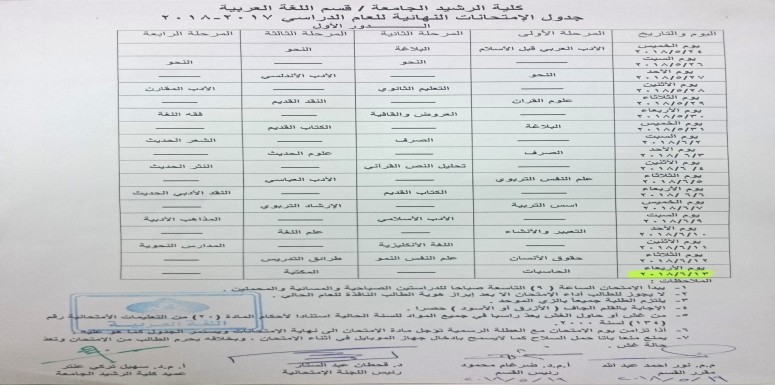 كلية الرشيد الجامعة / قسم اللغة العربية
جدول الإمتحانات النهائية للعام الدراسي ٢٠١٧-٢٠١٨
الدور الأول
اليوم والتاريخ المرحلة الأولى المرحلة الثانية المرحلة الثالثة المرحلة الرابعة
يوم الخميس ٢٠١٨/٥/٢٤ الأدب العربي قبل الأسلام البلاغة النحو
يوم السبت ٢٠١٨/٥/٢٦ النحو النحو
يوم الأحد ٢٠١٨/٥/٢٧ النحو الأدب الأندلسي
يوم الأثنين ٢٠١٨/٥/٢٨ التعليم الثانوي الأدب المقارن
يوم الثلاثاء ٢٠١٨/٥/٢٩ علوم القران النقد القديم
يوم الأربعاء ٢٠١٨/٥/٣٠ العروض والقافية فقه اللغة
يوم الخميس ٢٠١٨/٥/٣١ البلاغة الكتاب القديم
يوم السبت ٢٠١٨/٦/٢ الصرف الشعر الحديث
يوم الأحد ٢٠١٨/٦/٣ الصرف علوم الحديث
يوم الأثنين ٢٠١٨/٦/٤ تحليل النص القرآني النثر الحديث
يوم الثلاثاء ٢٠١٨/٦/٥ علم النفس التربوي الأدب العباسي
يوم الأربعاء ٢٠١٨/٦/٦ الكتاب القديم النقد الأدبي الحديث
يوم الخميس ٢٠١٨/٦/٧ اسس التربية الإرشاد التربوي
يوم السبت ٢٠١٨/٦/٩ الأدب الأسلامي المذاهب الأدبية
يوم الأحد ٢٠١٨/٦/١٠ التعبير والأنشاء علم اللغة
يوم الأثنين ٢٠١٨/٦/١١ اللغة الأنكليزية المدارس النحوية
يوم الثلاثاء ٢٠١٨/٦/١٢ حقوق الأنسان علم النفس النمو طرائق التدريس
يوم الأربعاء ٢٠١٨/٦/١٣ الحاسبات المكتبة
الملاحظات :
١- يبدأ الإمتحان الساعة (٩) التاسعة صباحا للدراستين الصباحية والمسائية والمحملين .
٢- لا يجوز للطالب اداء الإمتحان الا بعد ابراز هوية الطالب النافذة للعام الحالي .
٣- يلتزم الطلبة جميعاً بالزي الموحد .
٤- الإجابة بالقلم الجاف ( الأزرق أو الأسود ) حصرا .
٥- من غش أو حاول الغش يعد راسبا في جميع المواد للسنة الحالية استنادا لأحكام المادة (٢٠) من التعليمات الامتحانية رقم (١٣٤) لسنة ٢٠٠٠ .
٦- اذا تزامن يوم الامتحان مع العطلة الرسمية تؤجل مادة الإمتحان الى نهاية الإمتحانات ويستمر الجدول كما هو عليه .
٧- يمنع منعا باتا حمل السلاح كما لايسمح بإدخال جهاز الموبايل في أثناء الإمتحان . وبخلافه يحرم الطالب من الامتحان وتعد حالة غش .
اللغة العربية
م.م. نور احمد عبد الله م.د. ضرغام محمود د. قحطان عبد الستار أ.م.د. سهيل تركي عنتر
مقرر القسم رئيس القسم رئيس اللجنة الإمتحانية عميد كلية الرشيد الجامعة